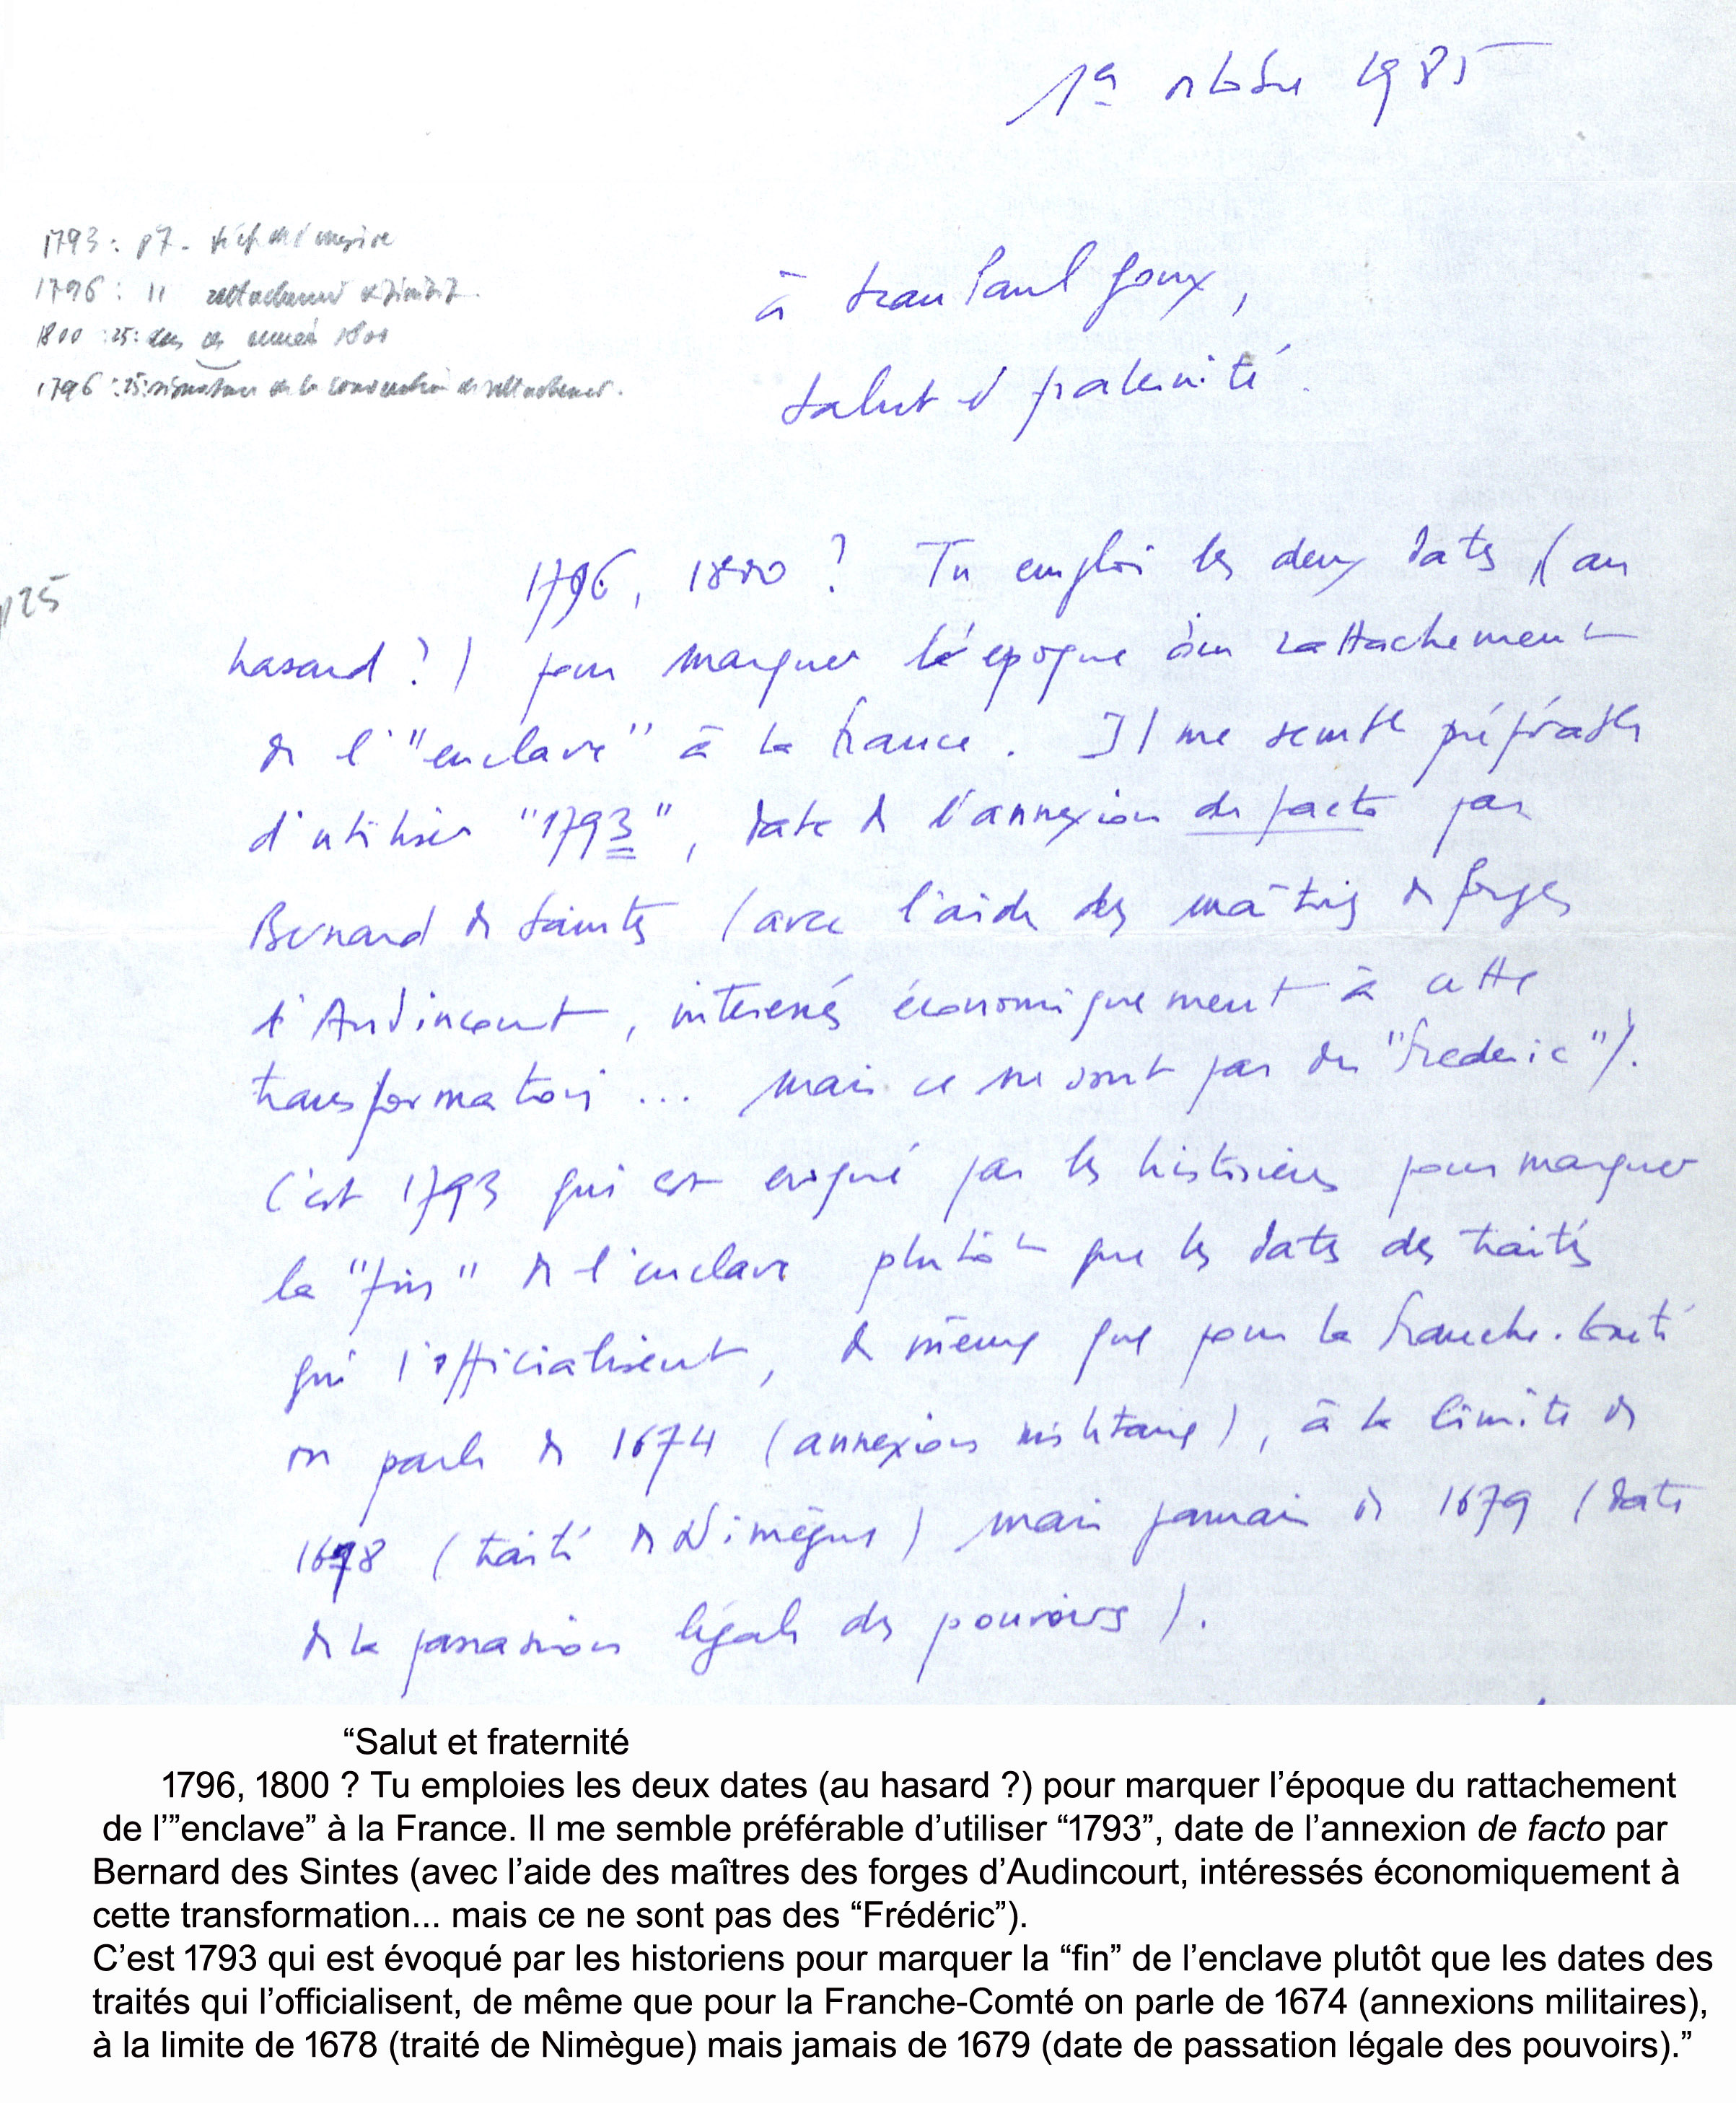 1er octobre 1985
1793 : p7 -
1796 : 11 rattachement
1800 : 25 : dans ces années 1800
1796 : 25 : signature de la convention de rattachement.
à Jean Paul Goux,
Salut et fraternité.
p25
1796, 1800 ? Tu emploi les deux dates (au
hasard ?) pour marquer l'époque du rattachement
de l'"enclave" à la France. Il me semble préférable
d'utiliser "1793", date de l'annexion de facto par
Bernard de Saintes (avec l'aide des maîtres de forges
d'Audincourt, interessés économiquement à cette
transformation ... mais ce ne sont pas des "Frederic").
C'est 1793 qui est évoqué par les historiens pour marquer
la "fin" de l'enclave plutôt que les dates des traités
qui l'officialisent, de même que pour la Franche-Comté
on parle de 1674 (annexion militaire), à la limite de
1678 (traité de Nimègue) mais jamais de 1679 (date
de la passation légale des pouvoirs).
“Salut et fraternité
1796, 1800 ? Tu emploies les deux dates (au hasard ?) pour marquer l’époque du rattachement
de l’”enclave” à la France. Il me semble préférable d’utiliser “1793”, date de l’annexion de facto par
Bernard des Sintes (avec l’aide des maîtres des forges d’Audincourt, intéressés économiquement à
cette transformation... mais ce ne sont pas des “Frédéric”).
C’est 1793 qui est évoqué par les historiens pour marquer la “fin” de l’enclave plutôt que les dates des
traités qui l’officialisent, de même que pour la Franche-Comté on parle de 1674 (annexions militaires),
à la limite de 1678 (traité de Nimègue) mais jamais de 1679 (date de passation légale des pouvoirs).”